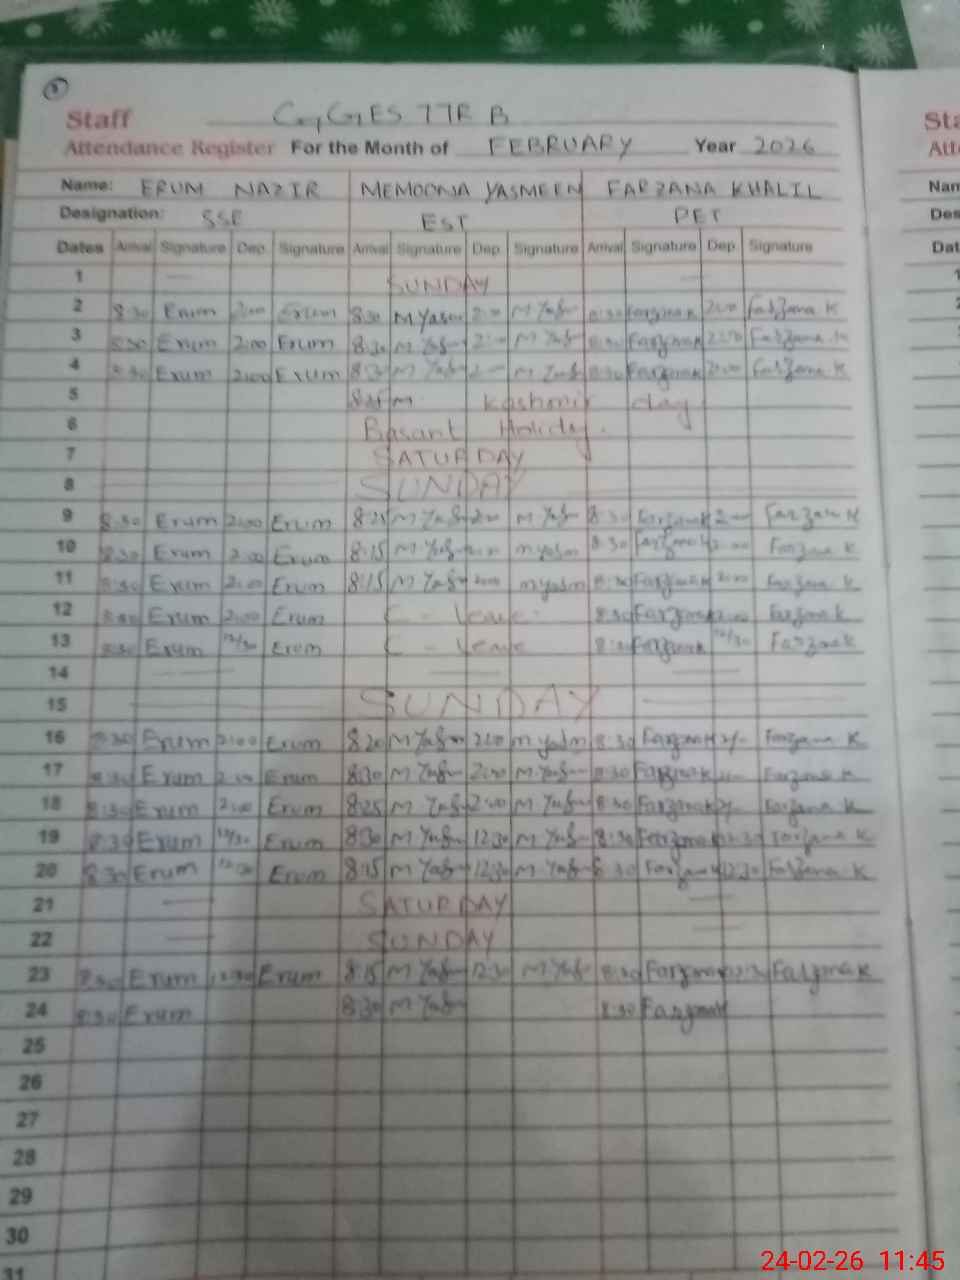 Staff GGES TTR B
Attendance Register For the Month of FEBRUARY Year 2026
Name: ERUM NAZIR MEMOONA YASMEEN FARZANA KHALIL
Designation: SSE EST PET
Dates Arrival Signature Dep. Signature Arrival Signature Dep. Signature Arrival Signature Dep. Signature
1 SUNDAY
2 8:30 Erum 2:00 Erum 8:30 M Yasm 2:00 M Yasm 8:30 Farzana K 2:00 Farzana K
3 8:30 Erum 2:00 Erum 8:30 M Yasm 2:00 M Yasm 8:30 Farzana K 2:00 Farzana K
4 8:30 Erum 2:00 Erum 8:30 M Yasm 2:00 M Yasm 8:30 Farzana K 2:00 Farzana K
5 Kashmir day
6 Basant Holiday.
7 SATURDAY
8 SUNDAY
9 8:30 Erum 2:00 Erum 8:25 M Yasm 2:00 M Yasm 8:30 Farzana K 2:00 Farzana K
10 8:30 Erum 2:00 Erum 8:15 M Yasm 2:00 m yasm 8:30 Farzana K 2:00 Farzana K
11 8:30 Erum 2:00 Erum 8:15 M Yasm 2:00 m yasm 8:30 Farzana K 2:00 Farzana K
12 8:30 Erum 2:00 Erum C - Leave 8:30 Farzana K 2:00 Farzana K
13 8:30 Erum 12/30 Erum C - Leave 8:30 Farzana K 12/30 Farzana K
14
15 SUNDAY
16 8:30 Erum 2:00 Erum 8:20 M Yasm 2:00 m yasm 8:30 Farzana K 2/- Farzana K
17 8:30 Erum 2:00 Erum 8:30 M Yasm 2:00 M Yasm 8:30 Farzana K Farzana K
18 8:30 Erum 2:00 Erum 8:25 M Yasm 2:00 M Yasm 8:30 Farzana K 2/- Farzana K
19 8:30 Erum 12/30 Erum 8:30 M Yasm 12:30 M Yasm 8:30 Farzana K 12:30 Farzana K
20 8:30 Erum 12:30 Erum 8:15 M Yasm 12:30 M Yasm 8:30 Farzana K 12:30 Farzana K
21 SATURDAY
22 SUNDAY
23 8:30 Erum 12:30 Erum 8:15 M Yasm 12:30 M Yasm 8:30 Farzana K 12:30 Farzana K
24 8:30 Erum 8:30 M Yasm 8:30 Farzana K
25
26
27
28
29
30
31
24-02-26 11:45